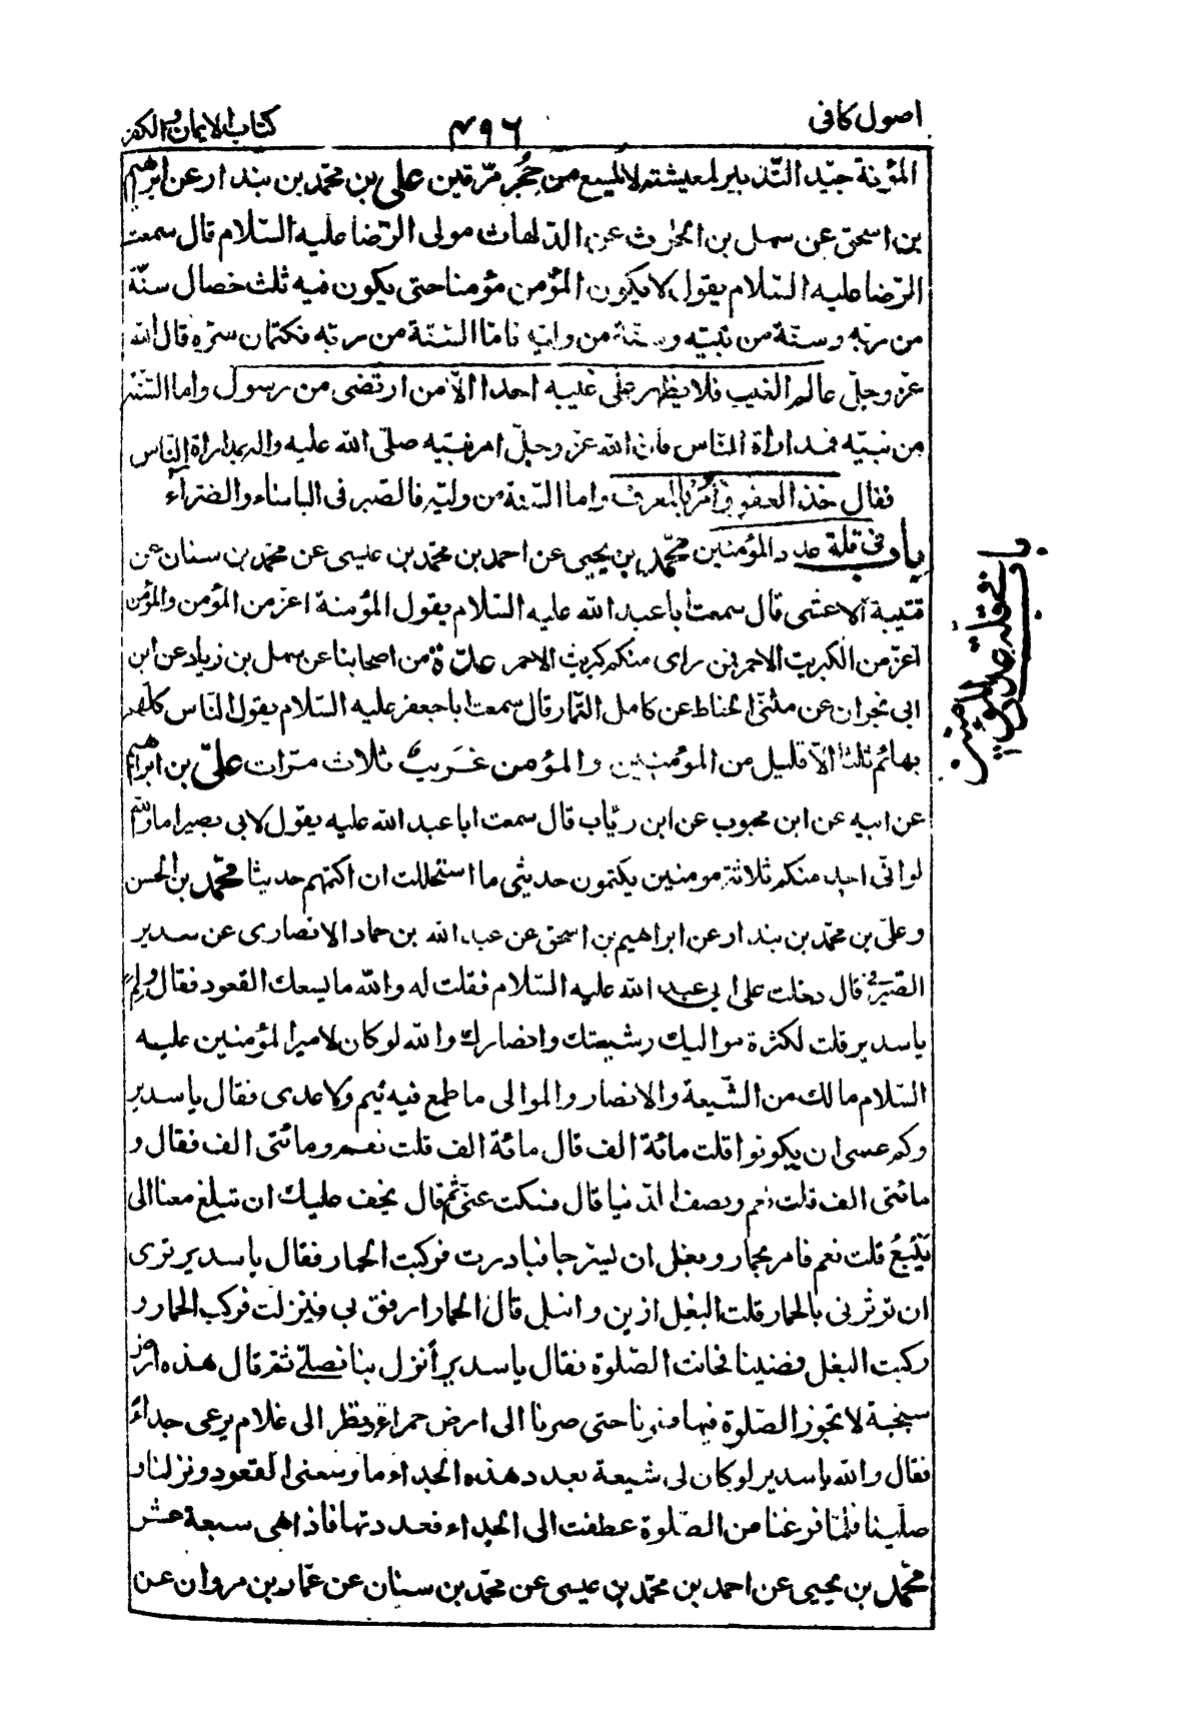 اصول کافی
۴۹۶
كتاب الايمان و الكفر
المؤنة جيّد التّدبير لمعيشته لا يلسع من جُحر مرّتين علي بن محمّد بن بندار عن ابرهيم
بن اسحق عن سهل بن الحارث عن الدلهاث مولى الرّضا عليه السّلام قال سمعت
الرّضا عليه السّلام يقول لا يكون المؤمن مؤمنا حتى يكون فيه ثلث خصال سنّة
من ربّه و سنّة من نبيّه و سنّة من وليّه فامّا السّنّة من ربّه فكتمان سرّه قال الله
عزّ وجلّ عالم الغيب فلا يظهر على غيبه احدا الّا من ارتضى من رسول و اما السّنّة
من نبيّه فمداراة النّاس فان الله عزّ وجلّ امر نبيّه صلّى الله عليه واله بمداراة النّاس
فقال خذ العفو و أمُر بالمعروف و اما السّنة من وليّه فالصّبر فى الباساء والضرّاء
باب فى قلة عدد المؤمنين محمّد بن يحيى عن احمد بن محمّد بن عيسى عن محمّد بن سنان عن
قتيبة الاعشى قال سمعت ابا عبد الله عليه السّلام يقول المؤمنة اعزّ من المؤمن والمؤمن
اعزّ من الكبريت الاحمر فمن راى منكم كبريت الاحمر عدّة من اصحابنا عن سهل بن زياد عن ابن
ابى نجران عن مثنّى الحناط عن كامل التمّار قال سمعت ابا جعفر عليه السّلام يقول النّاس كلّهم
بهائم ثلثا الّا قليل من المؤمنين والمؤمن غَريبٌ ثلاث مرّات علىّ بن ابراهيم
عن ابيه عن ابن محبوب عن ابن رئاب قال سمعت ابا عبد الله عليه يقول لابى بصير اما والله
لو انّى اجد منكم ثلاثة مومنين يكتمون حديثى ما استحللت ان اكتمهم حديثا محمّد بن الحسن
و علىّ بن محمّد بن بندار عن ابراهيم بن اسحق عن عبد الله بن حماد الانصارى عن سدير
الصّيرفى قال دخلت على ابى عبد الله عليه السّلام فقلت له والله ما يسعك القعود فقال ولم
يا سدير قلت لكثرة مواليك و شيعتك و انصارك والله لو كان لامير المؤمنين عليه
السّلام مالك من الشّيعة والانصار والموالى ما طمع فيه تيم ولا عدى فقال يا سدير
وكم عسى ان يكونوا قلت مائة الف قال مائة الف قلت نعم و مائتى الف فقال و
مائتى الف قلت نعم ونصف الدّنيا قال فسكت عنّى ثم قال يخف عليك ان تبلغ معنا الى
يَنْبُعُ قلت نعم فامر بحمار وبغل ان يسرجا فبادرت فركبت الحمار فقال يا سدير ترى
ان تؤثرنى بالحمار قلت البغل ازين و انبل قال الحمار ارفق بى فنزلت فركب الحمار و
ركبت البغل فمضينا فحانت الصّلوة فقال يا سدير أنزل بنا نصلّى ثم قال هذه ارض
سبخة لا تجوز الصّلوة فيها فسرنا حتى صرنا الى ارض حمراء ونظر الى غلام يرعى جداءً
فقال والله يا سدير لو كان لى شيعة بعدد هذه الجداء ما وسعنى القعود ونزلنا و
صلّينا فلمّا فرغنا من الصّلوة عطفت الى الجداء فعددتها فاذا هى سبعة عشر
محمّد بن يحيى عن احمد بن محمّد بن عيسى عن محمّد بن سنان عن عمّار بن مروان عن
باب فى قلة عدد المؤمنين